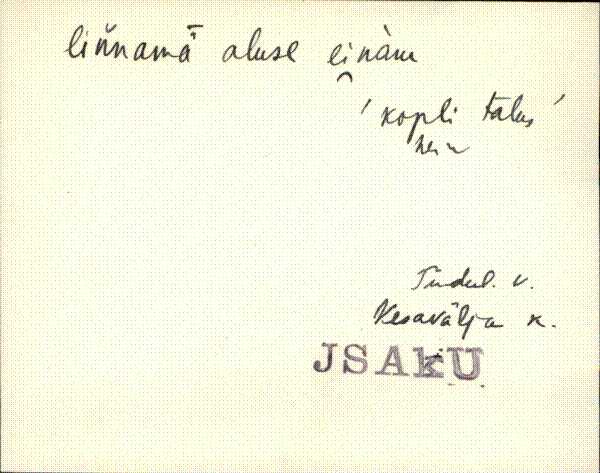 liňnamǟ aluse einàm
'kopli talus'
hein
Tudul. v.
Kesavälja k.
JSAkU